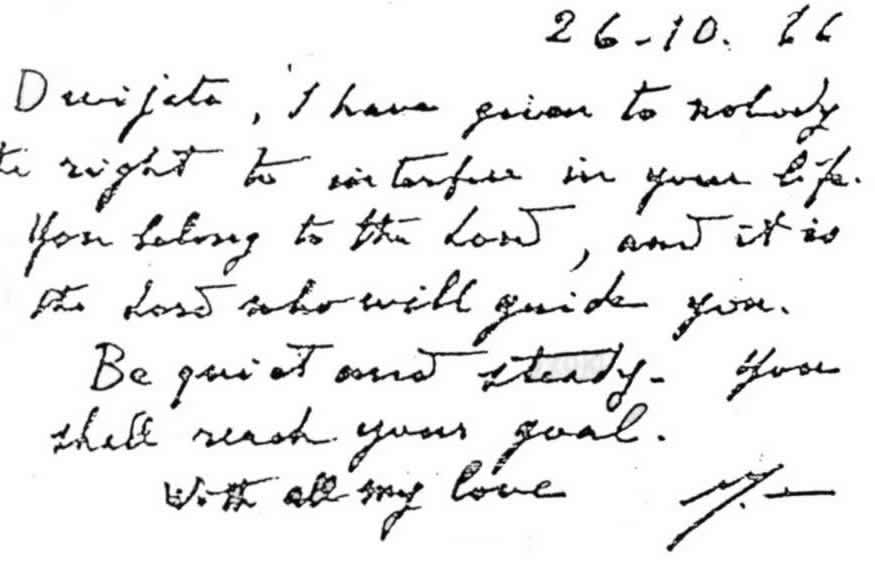 26-10. 66
Dwijata, I have given to nobody
the right to interfere in your life.
You belong to the Lord, and it is
the Lord who will guide you.
Be quiet and steady - You
shall reach your goal.
With all my love